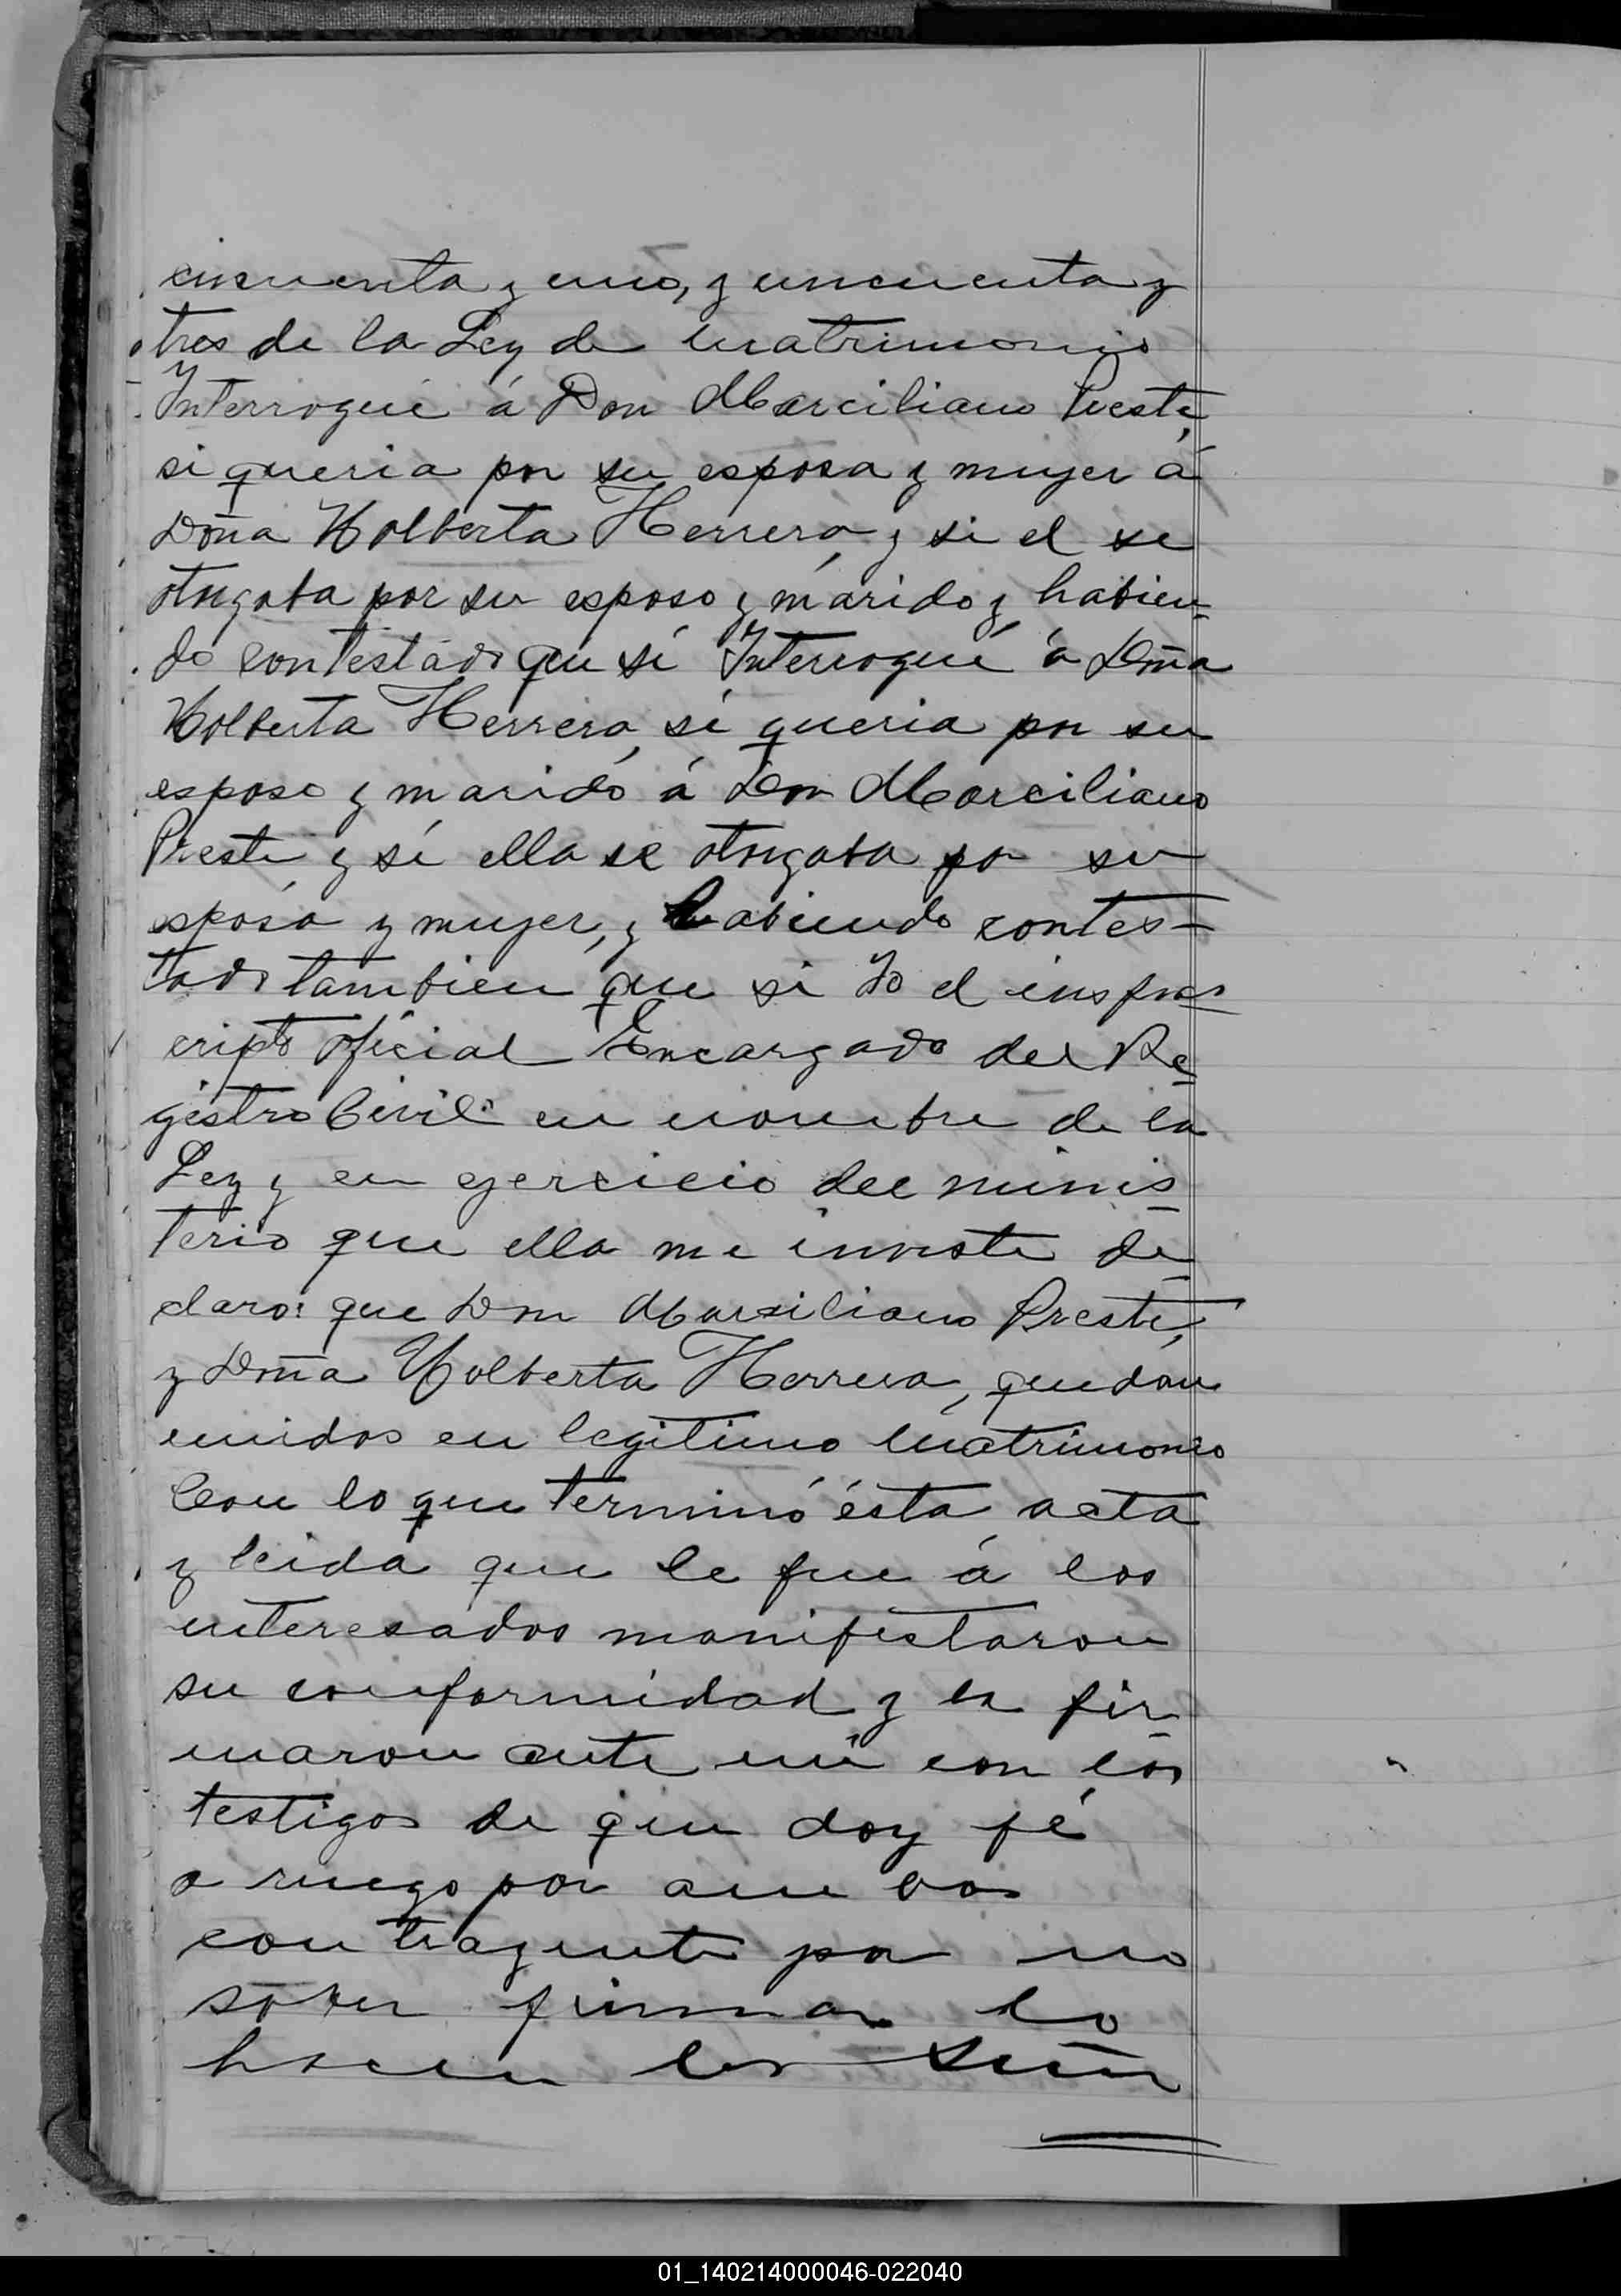 cincuenta y uno, y cincuenta y
tres de la Ley de matrimonio
Interrogué á Don Marciliano Preste,
si queria por su esposa y mujer á
Doña Holberta Herrera, y si el se
otorgaba por su esposo y marido y habien-
do contestado que sí Interrogué á Doña
Holberta Herrera, sí queria por su
esposo y marido á Don Marciliano
Preste, y sí ella se otorgaba por su
esposa y mujer, y habiendo contes-
tado tambien que si Yo el infras-
cripto oficial Encargado del Re-
gistro Civil en nombre de la
Ley y en ejercicio del minis-
terio que ella me inviste de-
claro: que Don Marsiliano Preste,
y Doña Holberta Herrera, quedan
unidos en legitimo matrimonio
Con lo que terminó ésta acta
y leida que le fue á los
interesados manifestaron
su conformidad y la fir-
maron ante mi con los
testigos de que doy fé
a ruego por am bos
contragente por no
saber firmar lo
hacen los Señ
01_140214000046-022040